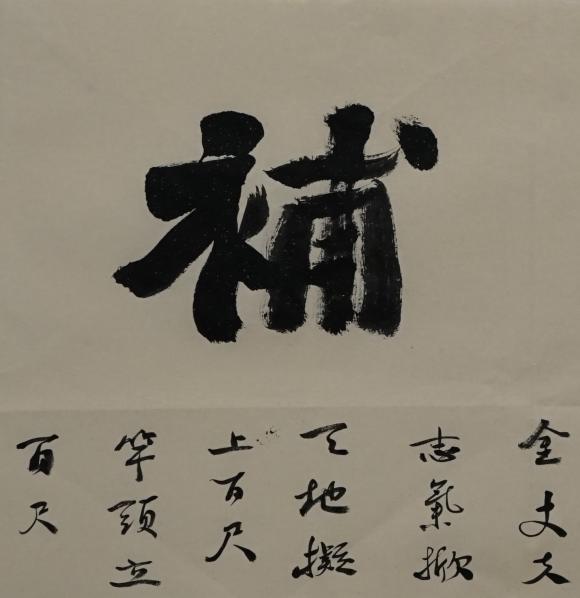 補
全丈夫
志氣掀
天地擬
上百尺
竿頭立
百尺